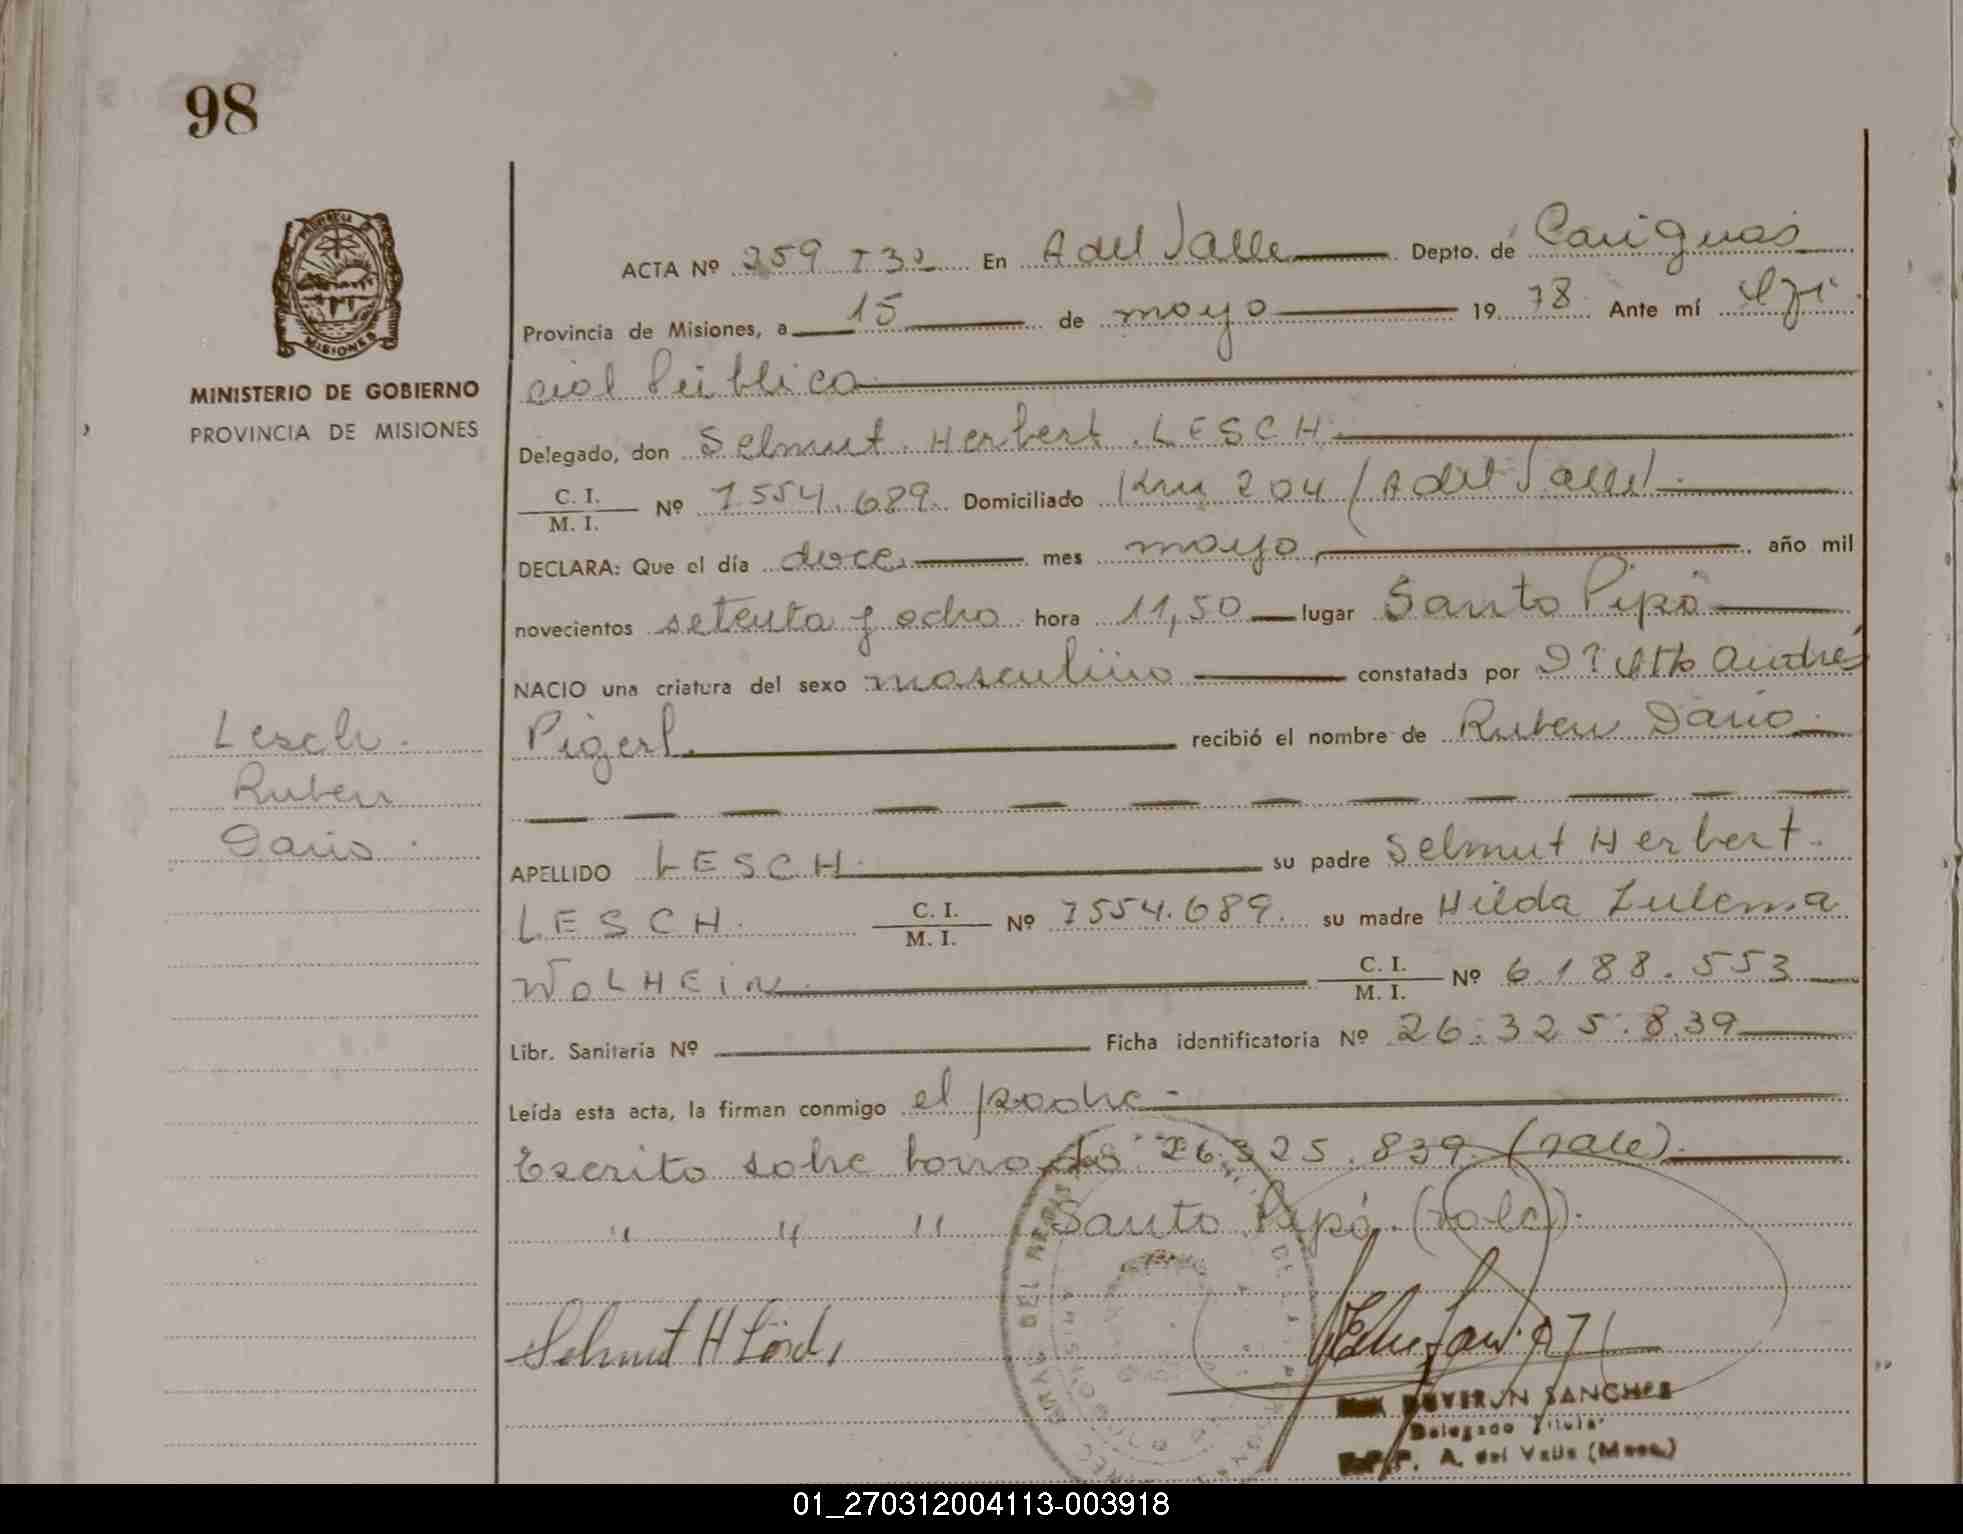 98
PROVINCIA
MISIONES
MINISTERIO DE GOBIERNO
PROVINCIA DE MISIONES
ACTA Nº 259 T 3º En A del Valle Depto. de Cainguas
Provincia de Misiones, a 15 de mayo 1978 Ante mí Ofi
cial Público
Delegado, don Selmut Herbert LESCH
C. I.
M. I. Nº 7554.689 Domiciliado Km 204 (A del Valle)
DECLARA: Que el día doce mes mayo año mil
novecientos setenta y ocho hora 11,50 lugar Santo Pipó
NACIO una criatura del sexo masculino constatada por Dº Otto Andrés
Pigerl recibió el nombre de Ruben Dario
Lesch
Ruben
Dario
APELLIDO LESCH su padre Selmut Herbert
LESCH C. I.
M. I. Nº 7554.689 su madre Hilda Zulema
WOLHEIN C. I.
M. I. Nº 6.188.553
Libr. Sanitaria Nº Ficha identificatoria Nº 26.325.839
Leída esta acta, la firman conmigo el padre
Escrito sobre borrado 26.325.839 (vale)
" " " Santo Pipó (vale)
Selmut H
SANCHEZ
Delegado Titular
A. del Valle (Mnes.)
01_270312004113-003918